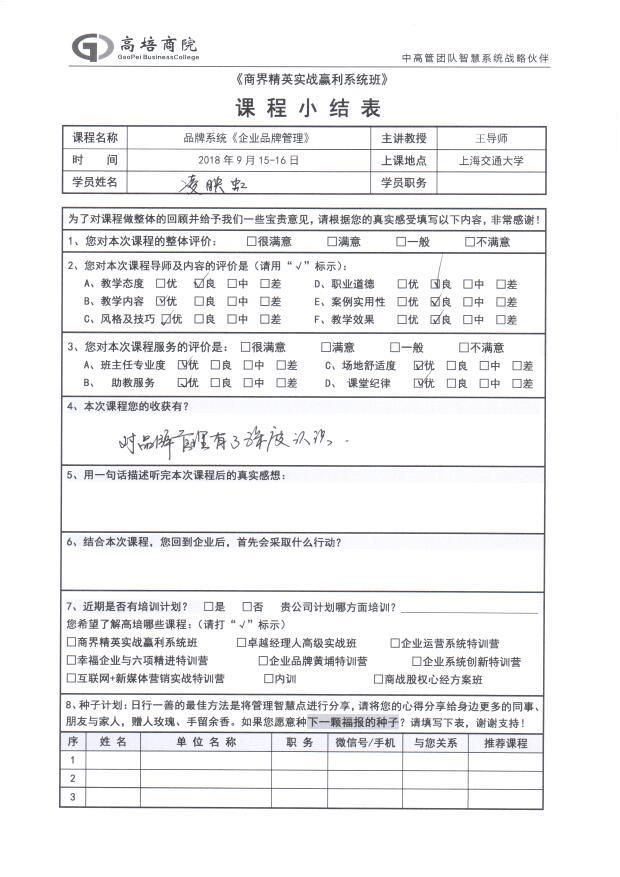 高培商院
GaoPei BusinessCollege
中高管团队智慧系统战略伙伴
《商界精英实战赢利系统班》
课程小结表
课程名称 品牌系统《企业品牌管理》 主讲教授 王导师
时 间 2018 年 9 月 15-16 日 上课地点 上海交通大学
学员姓名 凌映虹 学员职务
为了对课程做整体的回顾并给予我们一些宝贵意见,请根据您的真实感受填写以下内容,非常感谢!
1、您对本次课程的整体评价: □很满意 □满意 □一般 □不满意
2、您对本次课程导师及内容的评价是(请用“√”标示):
A、教学态度 □优 ☑良 □中 □差 D、职业道德 □优 ☑良 □中 □差
B、教学内容 ☑优 □良 □中 □差 E、案例实用性 □优 ☑良 □中 □差
C、风格及技巧 ☑优 □良 □中 □差 F、教学效果 □优 ☑良 □中 □差
3、您对本次课程服务的评价是: □很满意 □满意 □一般 □不满意
A、班主任专业度 ☑优 □良 □中 □差 C、场地舒适度 ☑优 □良 □中 □差
B、 助教服务 ☑优 □良 □中 □差 D、 课堂纪律 ☑优 □良 □中 □差
4、本次课程您的收获有?
对品牌管理有了深度认识.
5、用一句话描述听完本次课程后的真实感想:
6、结合本次课程,您回到企业后,首先会采取什么行动?
7、近期是否有培训计划? □是 □否 贵公司计划哪方面培训?
您希望了解高培哪些课程:(请打“√”标示)
□商界精英实战赢利系统班 □卓越经理人高级实战班 □企业运营系统特训营
□幸福企业与六项精进特训营 □企业品牌黄埔特训营 □企业系统创新特训营
□互联网+新媒体营销实战特训营 □内训 □商战股权心经方案班
8、种子计划:日行一善的最佳方法是将管理智慧点进行分享,请将您的心得分享给身边更多的同事、
朋友与家人,赠人玫瑰、手留余香。如果您愿意种下一颗福报的种子?请填写下表,谢谢支持!
序 姓 名 单 位 名 称 职 务 微信号/手机 与您关系 推荐课程
1
2
3